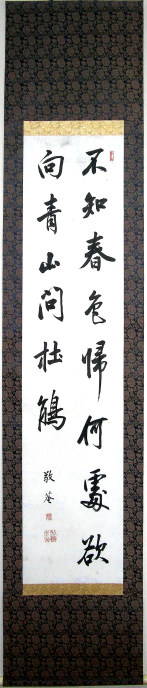 不知春色歸何處欲
向青山問杜鵑
敬菴